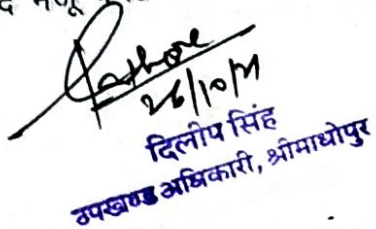 26/10/11
दिलीप सिंह
उपखण्ड अधिकारी, श्रीमाधोपुर